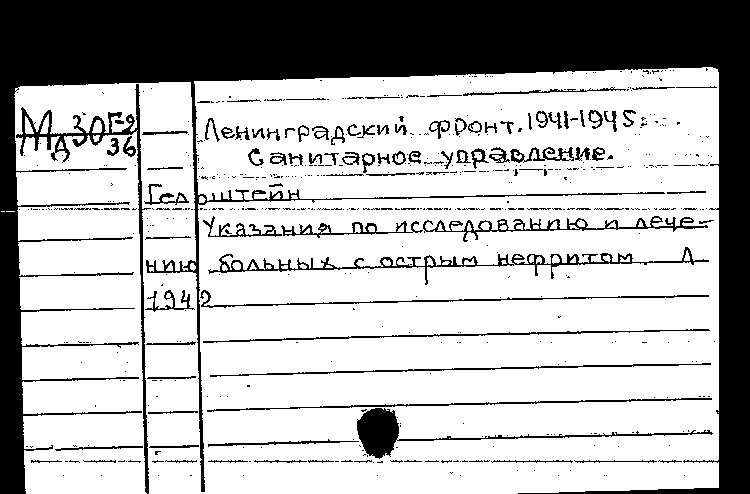 Мд 30 Г-9
36
Ленинградский фронт. 1941-1945.
Санитарное управление.
Гельштейн.
Указания по исследованию и лече-
нию больных с острым нефритом. Л
1942